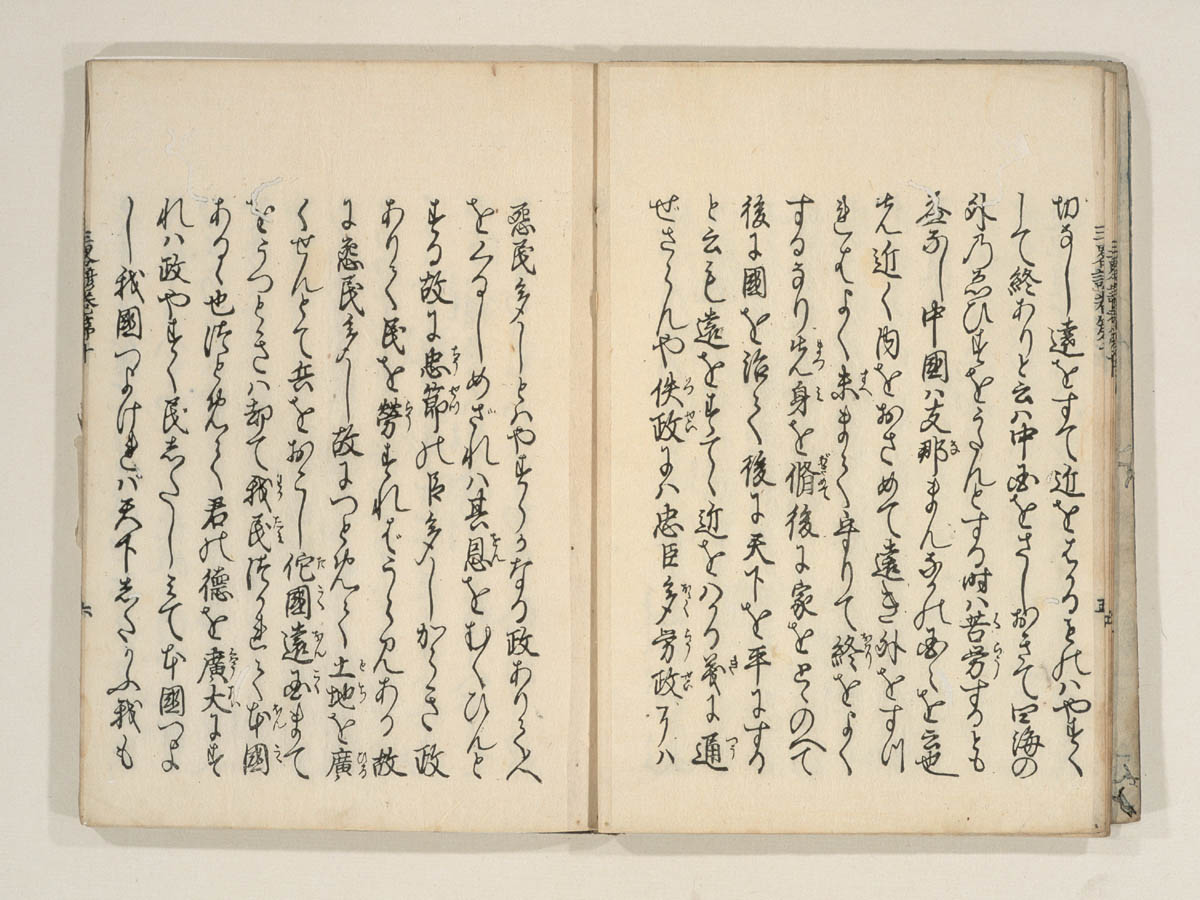 功なし遠をすて近をはかるものハやすく
して終ありと云ハ中国をさしおきて四海の
外乃ゑひすをうたんとする時ハ苦労すとも
益なし中國ハ支那まん中の国を云也
先近く内をおさめて遠き外をすつ
れはよく末まて守りて終をよく
するなり先身を脩後に家をとゝのへて
後に國を治て後に天下を平にする
と云も遠をすてゝ近をハかる義に通
ぜざらんや佚政にハ忠臣多労政にハ
五
怨民多しとハやすらかなる政ありて人
をくるしめざれハ其恩をむくひんと
する故に忠節の臣多しからき政
ありて民を勞すればうらみある故
に怨民多し故につとめて土地を廣
くせんとて兵をおこし佗國遠国まて
をうつときハ却て我民つかれて本國
あるゝ也つとめて君の德を廣大にす
れハ政やすく民したしミて本國つよ
し我國つよけれバ天下したかふ我も
六